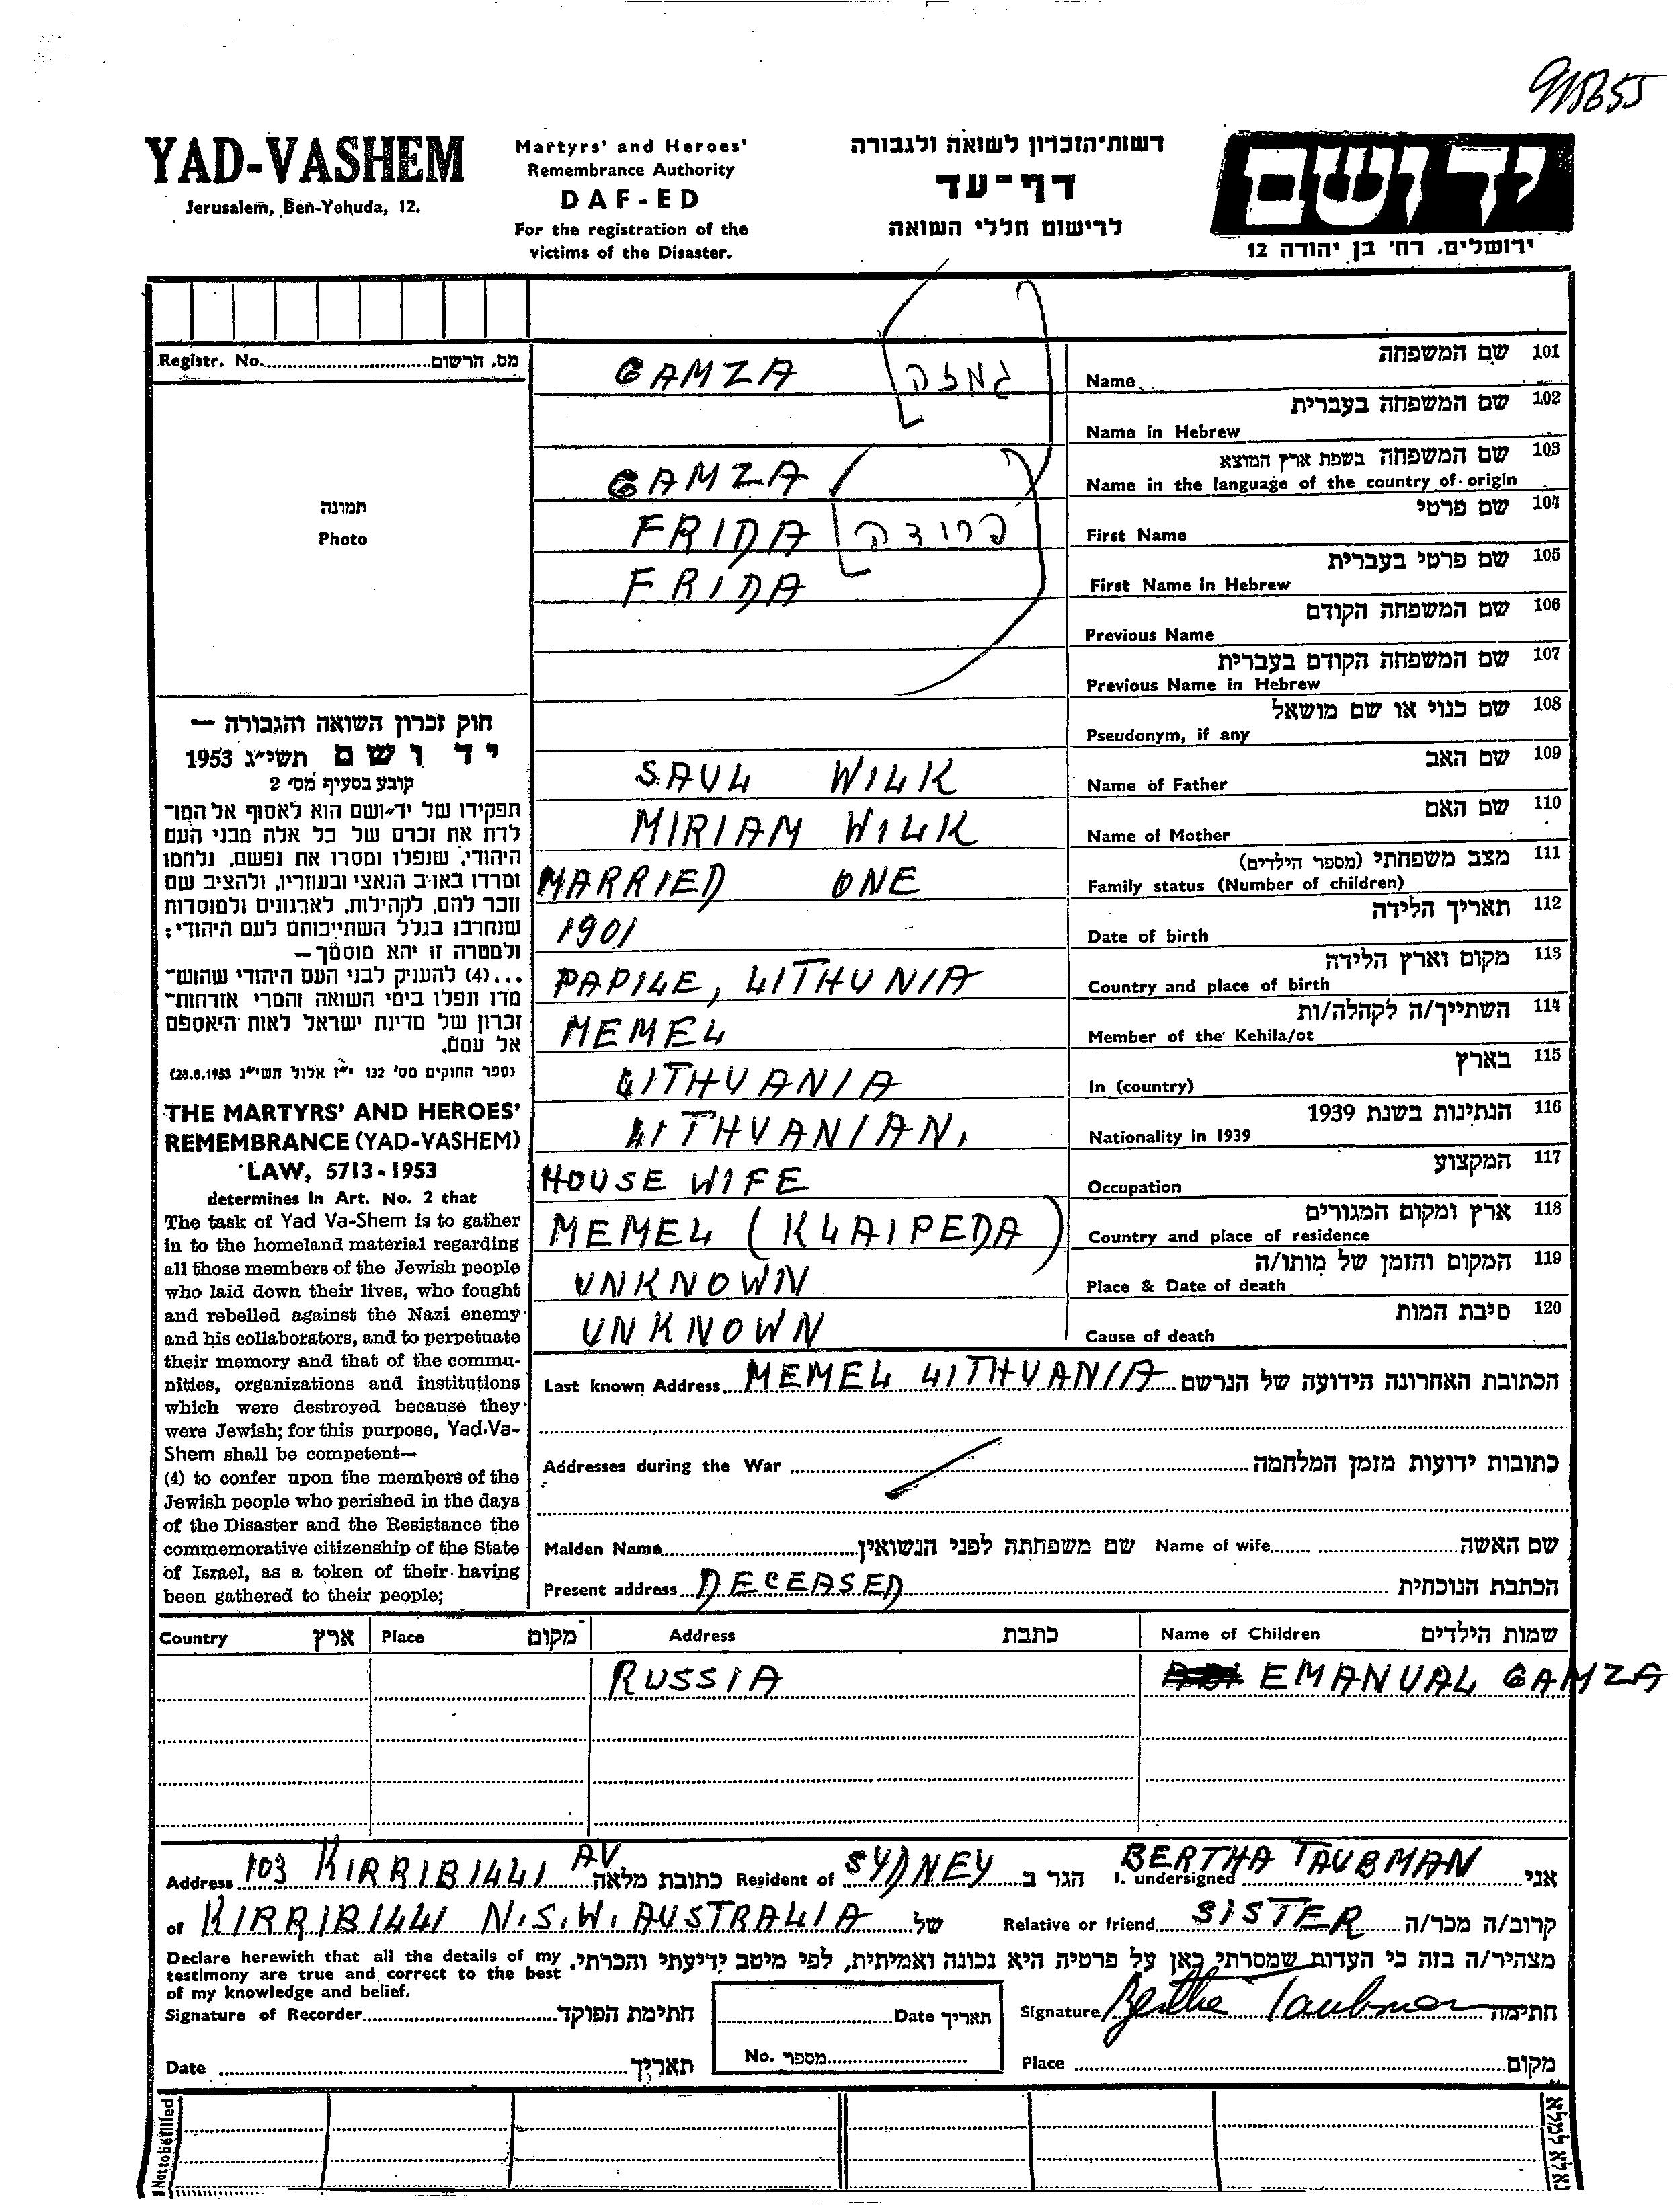 YAD-VASHEM
Jerusalem, Ben-Yehuda, 12.
Martyrs' and Heroes'
Remembrance Authority
DAF-ED
For the registration of the
victims of the Disaster.
רשות־הזכרון לשואה ולגבורה
דף־עד
לרישום חללי השואה
יד ושם
ירושלים, רח' בן יהודה 12
Registr. No. מס. הרשום
תמונה
Photo
חוק זכרון השואה והגבורה —
יד ושם תשי"ג 1953
קובע בסעיף מס' 2
תפקידו של יד־ושם הוא לאסוף אל המו־
לדת את זכרם של כל אלה מבני העם
היהודי, שנפלו ומסרו את נפשם, נלחמו
ומרדו באויב הנאצי ובעוזריו, ולהציב שם
וזכר להם, לקהילות, לארגונים ולמוסדות
שנחרבו בגלל השתייכותם לעם היהודי;
ולמטרה זו יהא מוסמך—
...(4) להעניק לבני העם היהודי שהוש־
מדו ונפלו בימי השואה והמרי אזרחות־
זכרון של מדינת ישראל לאות היאספם
אל עמם.
(ספר החוקים מס' 132 י"ז אלול תשי"ג 28.8.1953)
THE MARTYRS' AND HEROES'
REMEMBRANCE (YAD-VASHEM)
LAW, 5713-1953
determines in Art. No. 2 that
The task of Yad Va-Shem is to gather
in to the homeland material regarding
all those members of the Jewish people
who laid down their lives, who fought
and rebelled against the Nazi enemy
and his collaborators, and to perpetuate
their memory and that of the commu-
nities, organizations and institutions
which were destroyed because they
were Jewish; for this purpose, Yad-Va-
Shem shall be competent—
(4) to confer upon the members of the
Jewish people who perished in the days
of the Disaster and the Resistance the
commemorative citizenship of the State
of Israel, as a token of their having
been gathered to their people;
101 שם המשפחה
Name GAMZA גמזה
102 שם המשפחה בעברית
Name in Hebrew
103 שם המשפחה בשפת ארץ המוצא
Name in the language of the country of origin GAMZA
104 שם פרטי
First Name FRIDA פרידה
105 שם פרטי בעברית
First Name in Hebrew FRIDA
106 שם המשפחה הקודם
Previous Name
107 שם המשפחה הקודם בעברית
Previous Name in Hebrew
108 שם כנוי או שם מושאל
Pseudonym, if any
109 שם האב
Name of Father SAUL WILK
110 שם האם
Name of Mother MIRIAM WILK
111 מצב משפחתי (מספר הילדים)
Family status (Number of children) MARRIED ONE
112 תאריך הלידה
Date of birth 1901
113 מקום וארץ הלידה
Country and place of birth PAPILE, LITHUNIA
114 השתייך/ה לקהלה/ות
Member of the Kehila/ot MEMEL
115 בארץ
In (country) LITHUANIA
116 הנתינות בשנת 1939
Nationality in 1939 LITHUANIAN.
117 המקצוע
Occupation HOUSE WIFE
118 ארץ ומקום המגורים
Country and place of residence MEMEL (KLAIPEDA)
119 המקום והזמן של מותו/ה
Place & Date of death UNKNOWN
120 סיבת המות
Cause of death UNKNOWN
Last known Address MEMEL LITHUANIA הכתובת האחרונה הידועה של הנרשם
Addresses during the War כתובות ידועות מזמן המלחמה
Maiden Name שם משפחתה לפני הנשואין Name of wife שם האשה
Present address DECEASED הכתבת הנוכחית
Country ארץ Place מקום Address כתבת Name of Children שמות הילדים
RUSSIA EMANUAL GAMZA
אני BERTHA TAUBMAN I. undersigned הגר ב SYDNEY Resident of כתובת מלאה 103 KIRRIBILLI AV Address
קרוב/ה מכר/ה SISTER Relative or friend של KIRRIBILLI N.S.W. AUSTRALIA of
מצהיר/ה בזה כי העדות שמסרתי כאן על פרטיה היא נכונה ואמיתית, לפי מיטב ידיעתי והכרתי.
Declare herewith that all the details of my
testimony are true and correct to the best
of my knowledge and belief.
Signature of Recorder חתימת הפוקד
Date תאריך
Date תאריך
No. מספר
Signature Bertha Taubman חתימה
Place מקום
Not to be filled
נא לא למלא